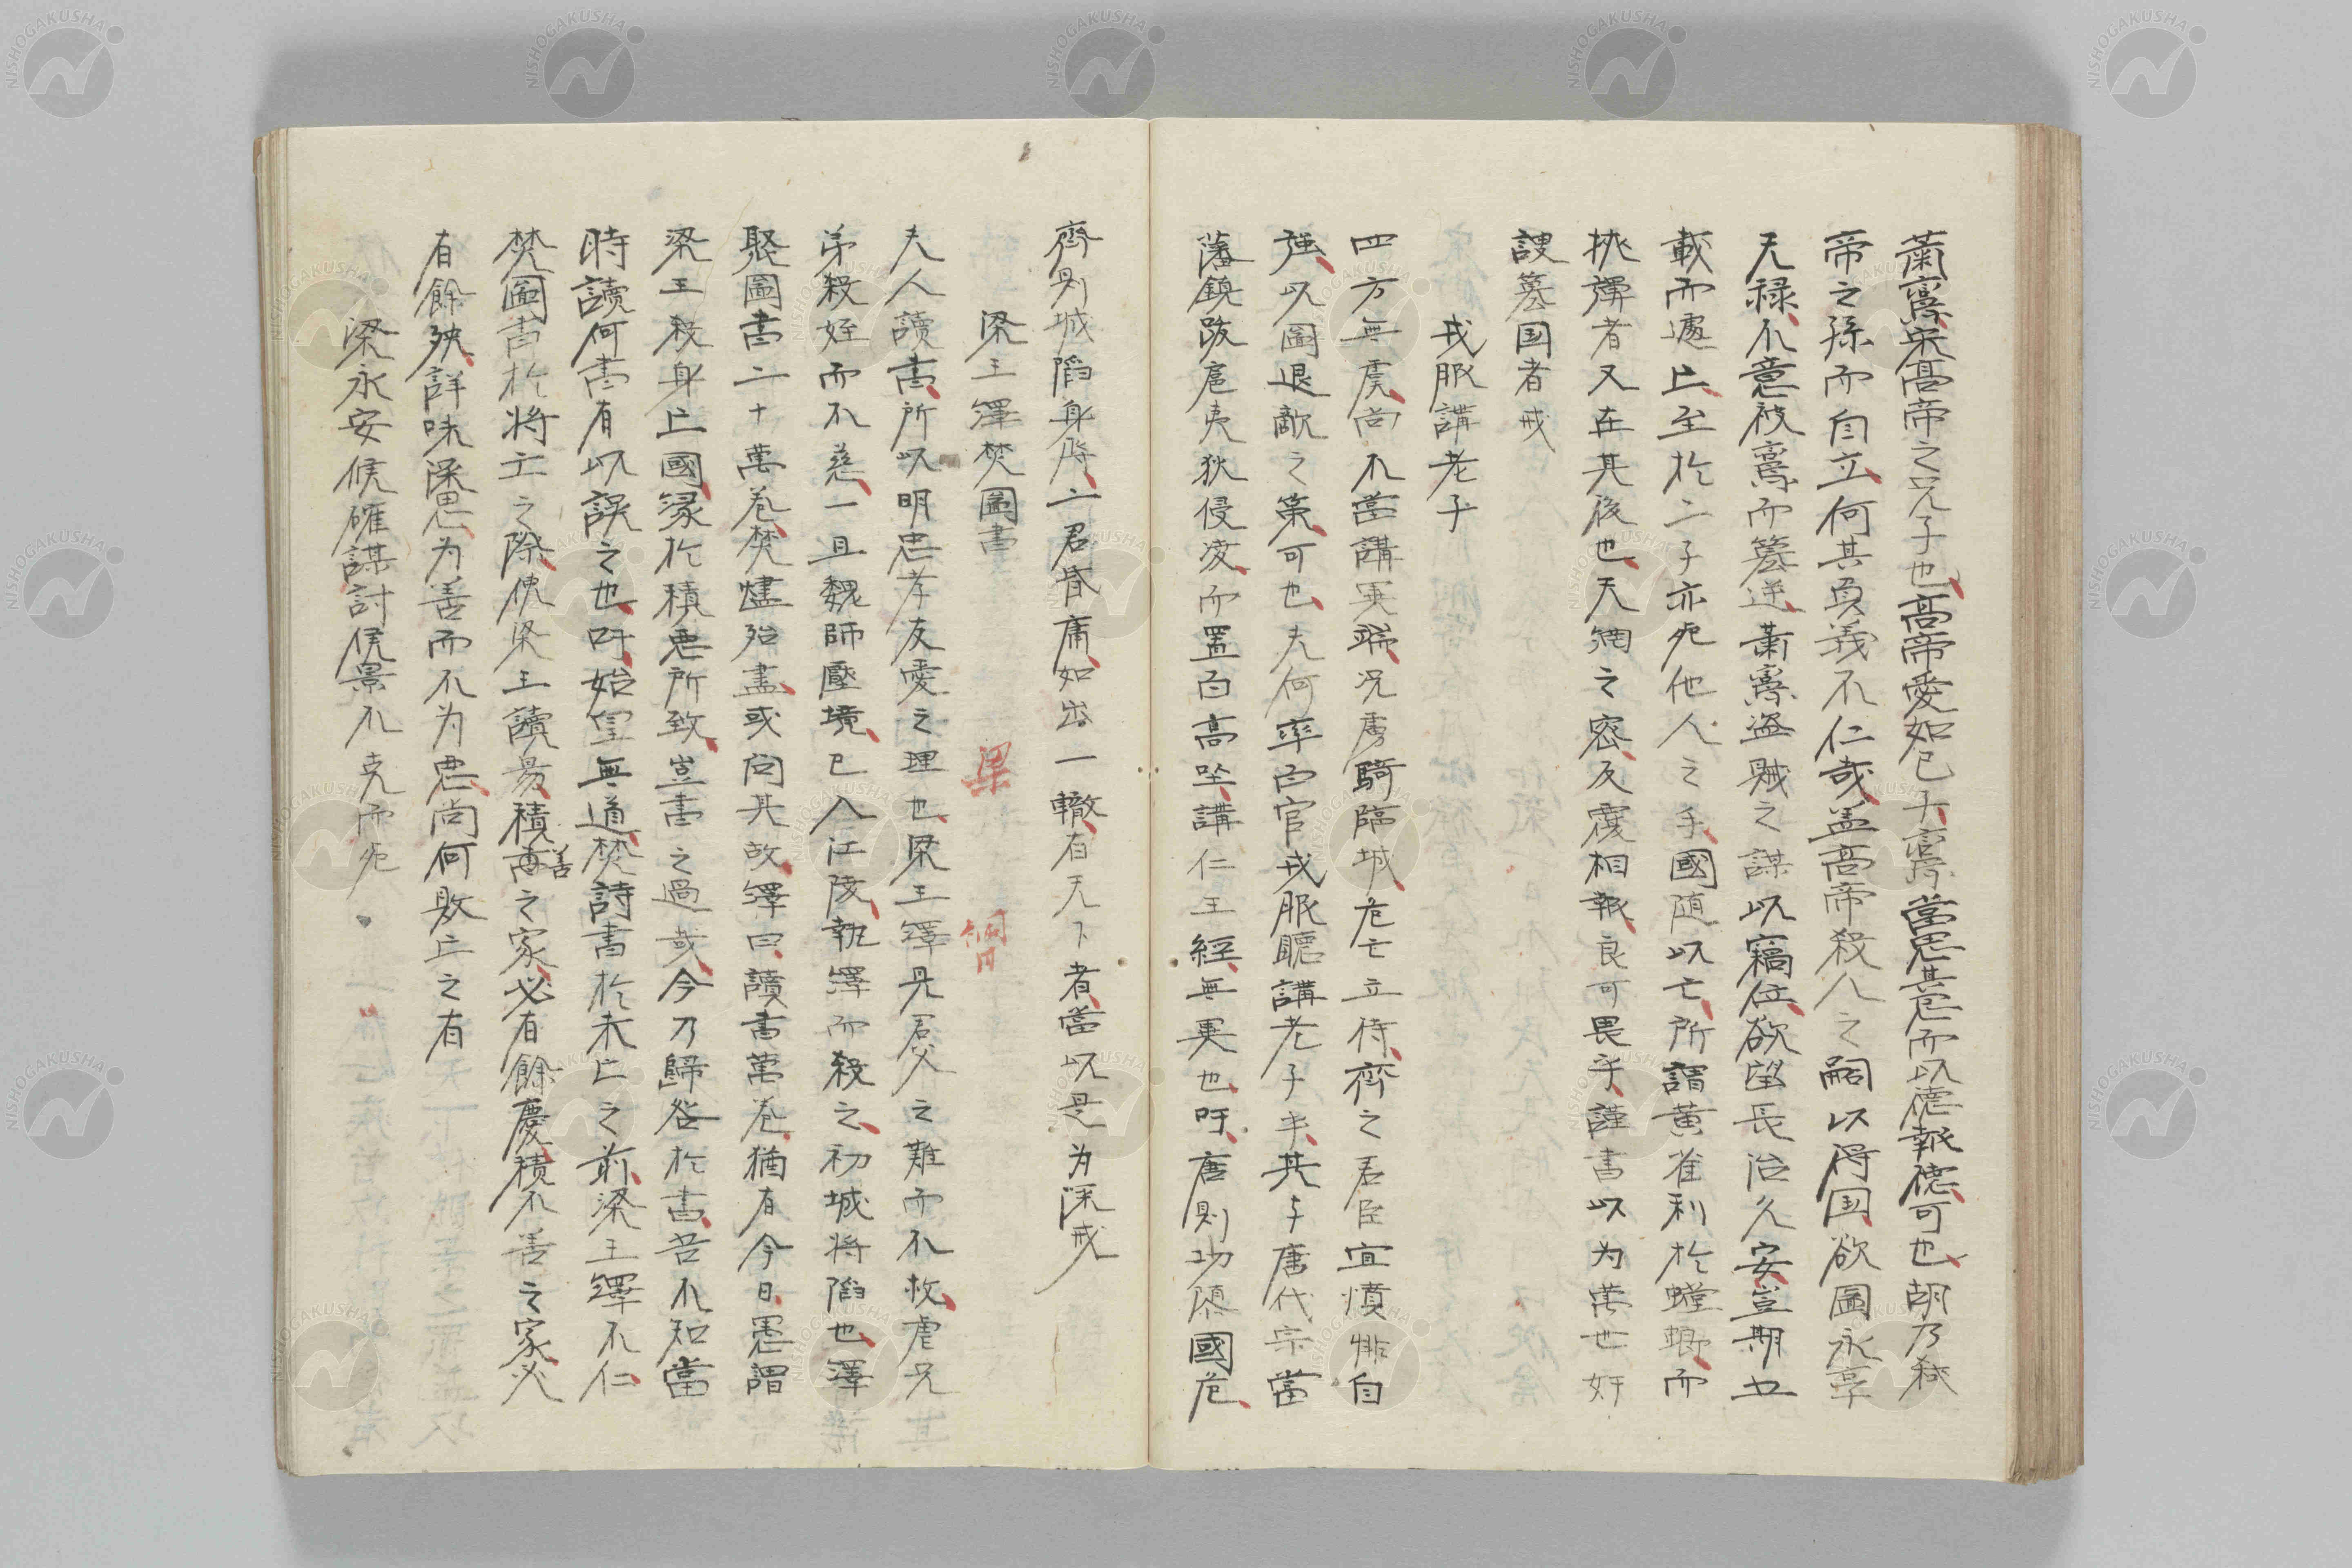 蕭鸞宋高帝之兄子也高帝愛如已子鸞當思其㤙而以德報德可也胡乃弑
帝之孫而自立何其負義不仁哉盖高帝殺人之嗣以得国欲圖永享
天禄不意被鸞而簒逆蕭鸞盗賊之謀以竊位欲望長治久安豈期五
載而遽亡至於二子亦死他人之手國随以亡所謂黄雀利於螳螂而
挾彈者又在其後也天網之密反覆相報良可畏乎謹書以为萬世奸
諛簒国者戒
戎服講老子
四方無虞尚不當講異端况虜騎臨城危亡立待齊之君臣宜憤悱自
強以圖退敵之策可也夫何率百官戎服聽講老子乎其与唐代宗當
藩鎮跋扈夷狄侵凌而置百高坐講仁王經無異也吁唐則功隳國危
齊則城陷身降二君昏庸如出一轍有天下者當以是为深戒
梁王繹焚圖書
梁
綱目
夫人讀書所以明忠孝友愛之理也梁王繹見君父之難而不救虐兄
弟殺姪而不慈一旦魏師壓境已入江陵執繹而殺之初城将陷也繹
聚圖書二十萬卷焚燼殆盡或问其故繹曰讀書萬卷猶有今日愚謂
梁王殺身亡國縁於積悪所致豈書之過或今乃歸咎於書苦不知當
時讀何書有以誤之也吁始皇無道焚詩書於未亡之前梁王繹不仁
焚圖書於将亡之際使梁王讀易積善之家必有餘慶積不善之家必
有餘殃詳味深思为善而不为悪尚何敗亡之有
梁永安侯確謀討侯景不克而死
NISHOGAKUSHA